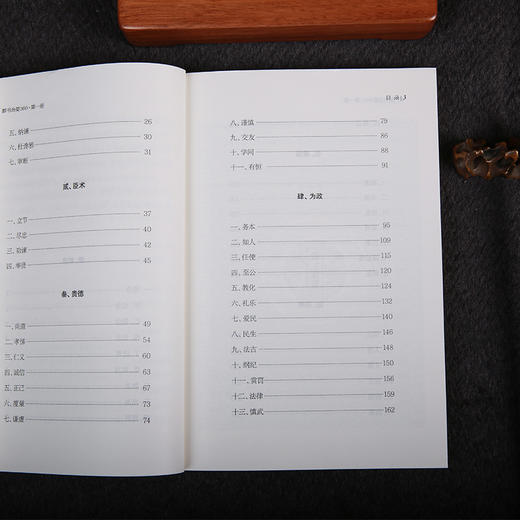 群书治要360·第一册
五、纳谏 26
六、杜谗邪 30
七、审断 31
贰、臣术
一、立节 37
二、尽忠 40
三、劝谏 42
四、举贤 45
叁、贵德
一、尚道 49
二、孝悌 54
三、仁义 60
四、诚信 63
五、正己 67
六、度量 73
七、谦虚 74
目 录 | 3
八、谨慎 79
九、交友 86
十、学问 88
十一、有恒 91
肆、为政
一、务本 95
二、知人 109
三、任使 115
四、至公 120
五、教化 124
六、礼乐 132
七、爱民 140
八、民生 146
九、法古 148
十、纲纪 150
十一、赏罚 156
十二、法律 159
十三、慎武 162